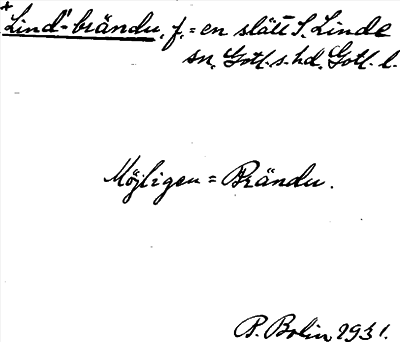 *Lind'-brändu, f. = en slätt S. Linde
sn. Gotl. s. hd. Gotl. l.
Möjligen = Brändu.
P. Bolin 1931.